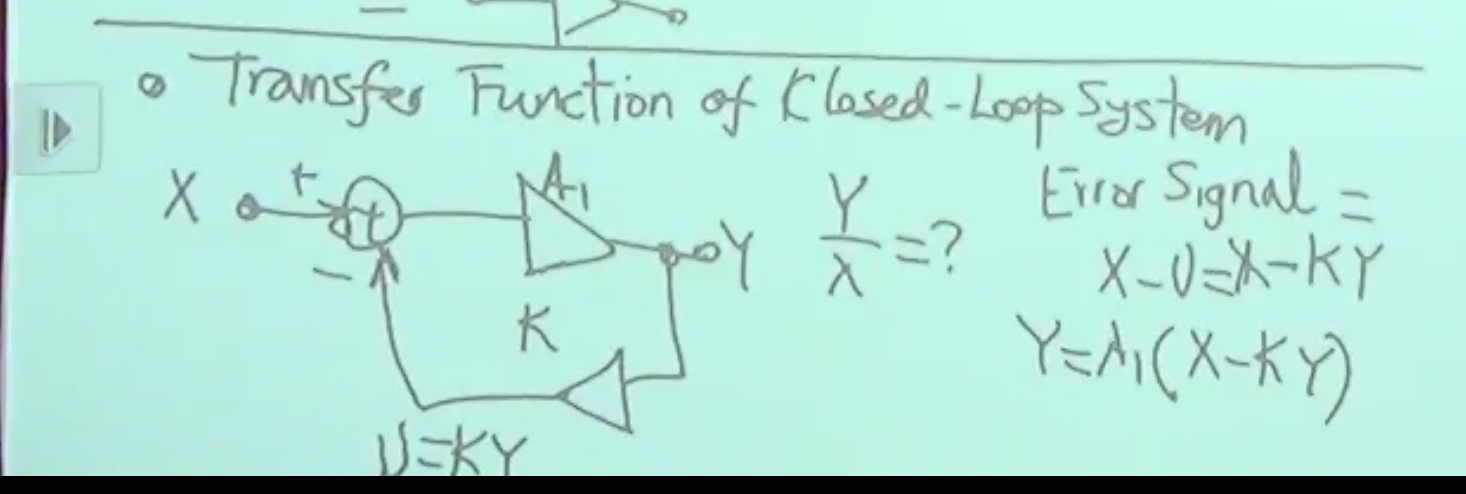 Transfer Function of Closed-Loop System
X + - A1 Y
K
U=KY
Y/X =?
Error Signal =
X-U=X-KY
Y=A1(X-KY)